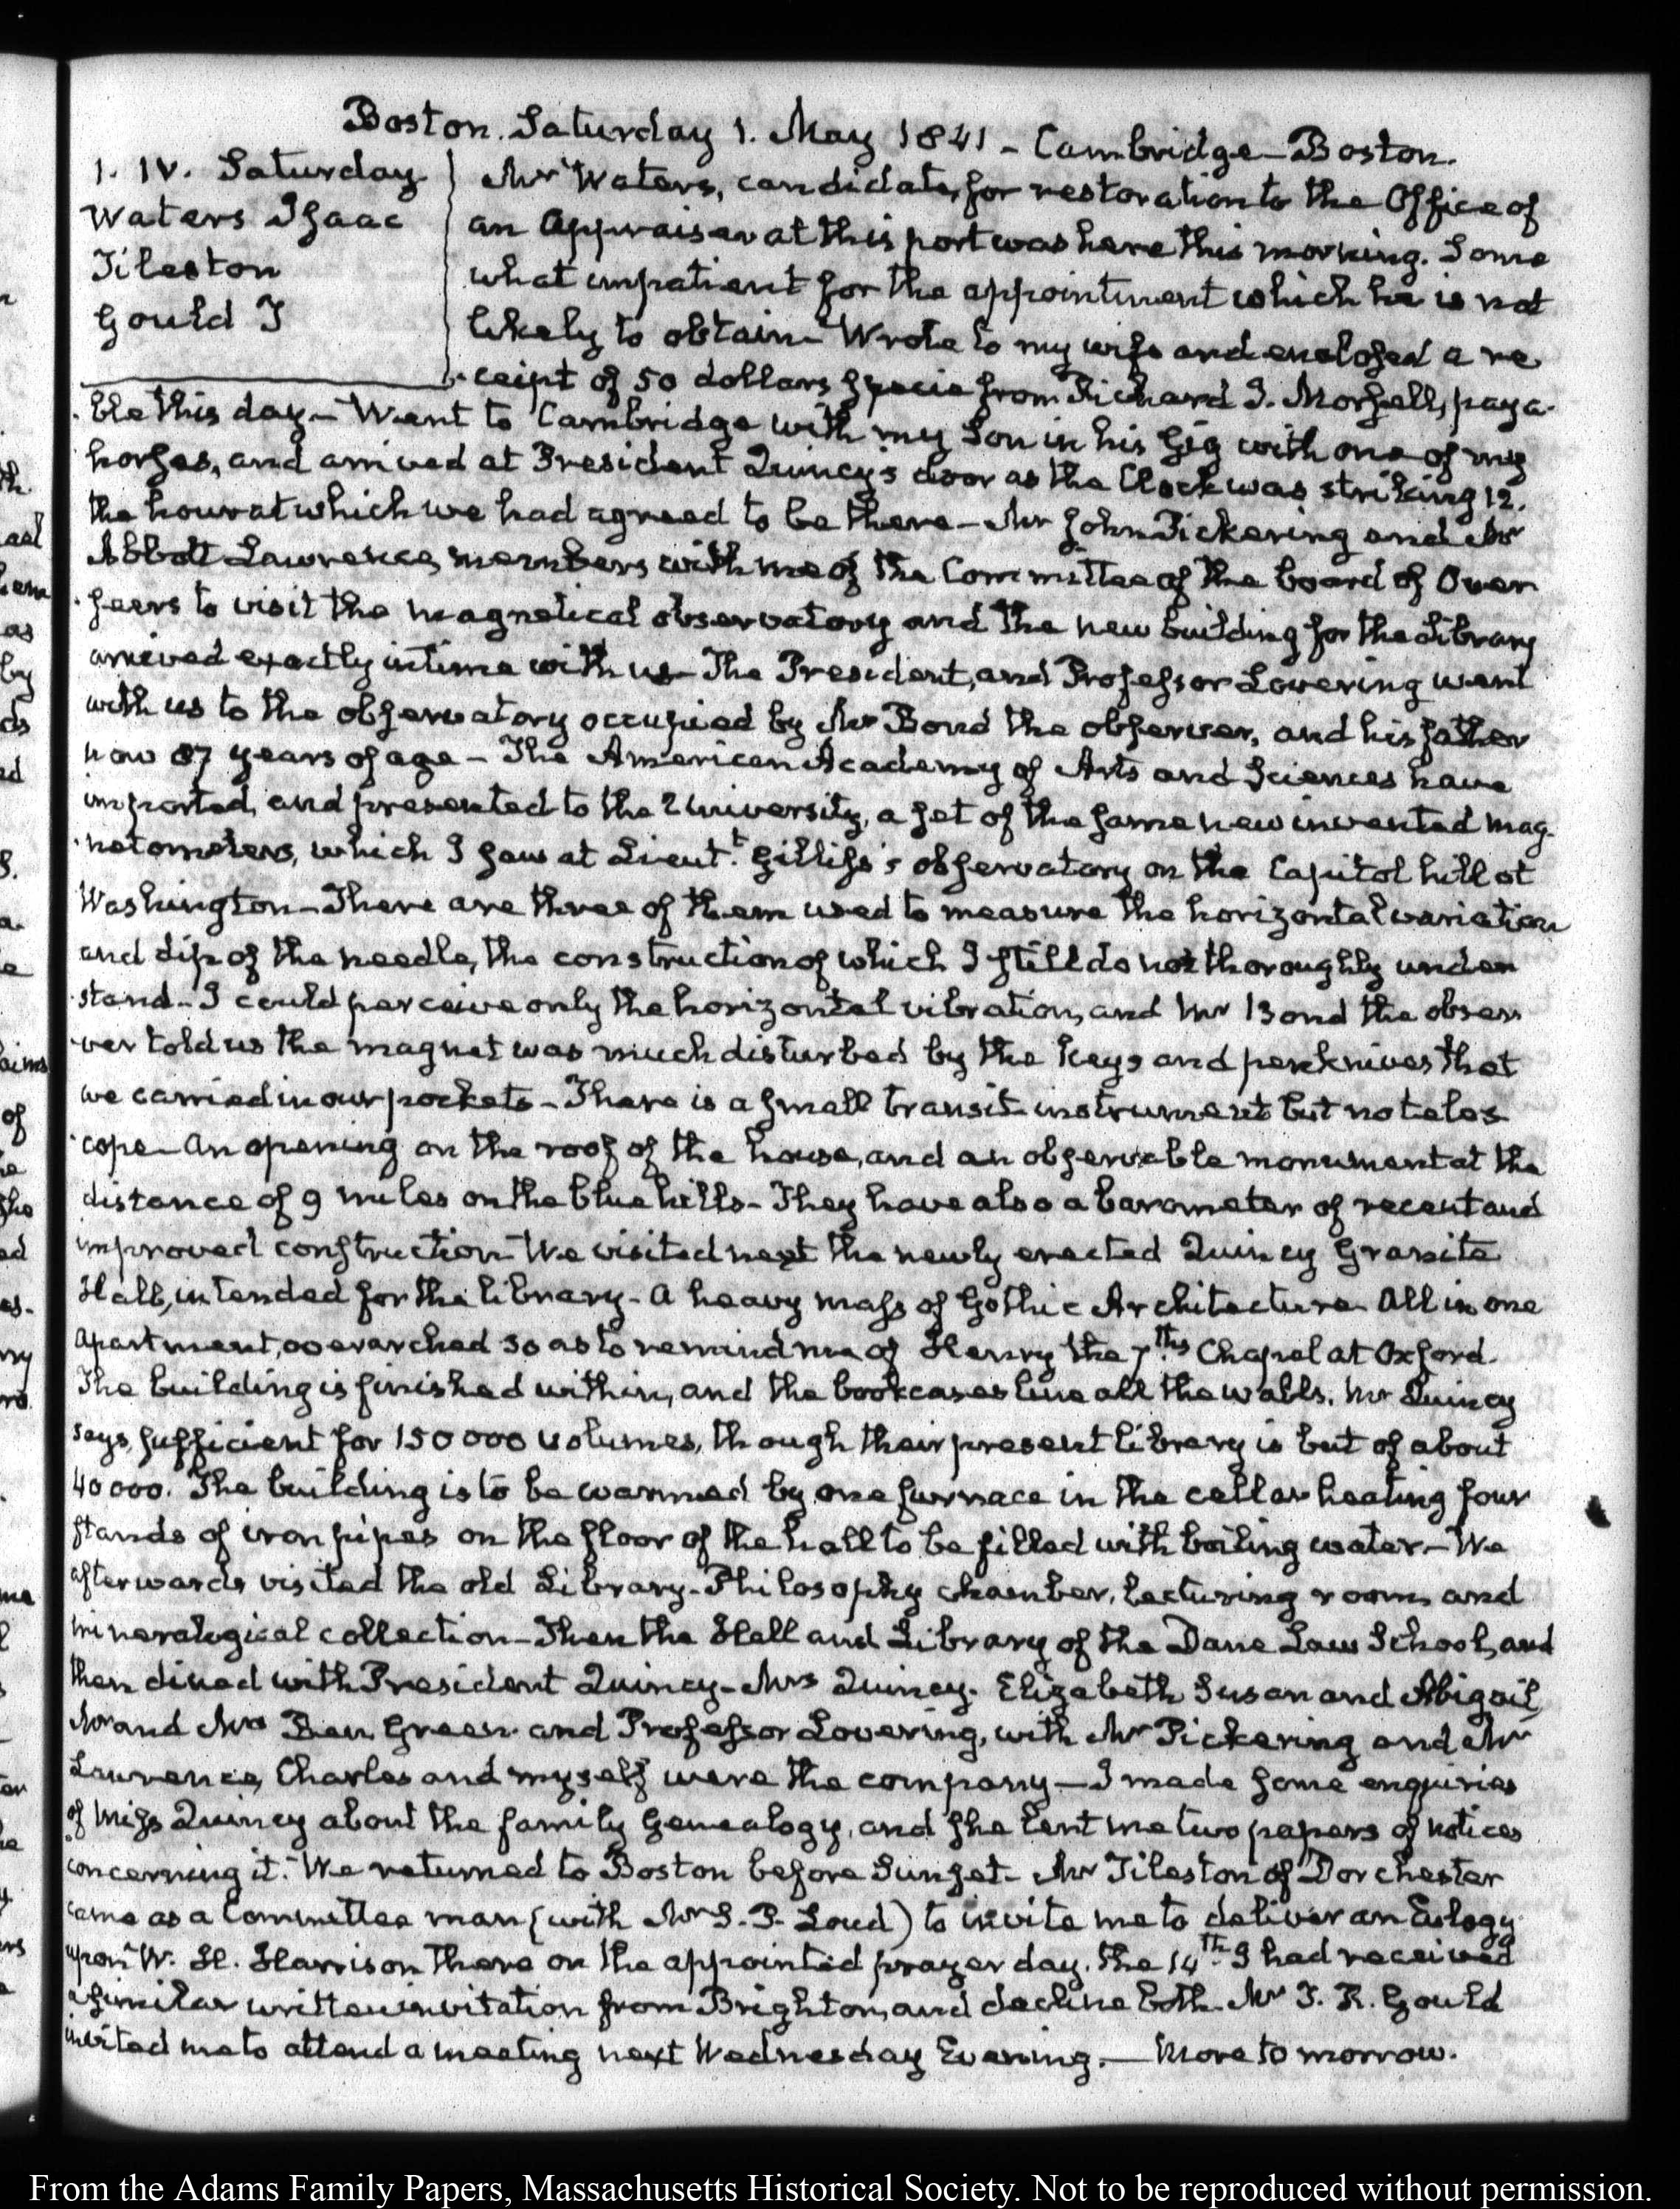 Boston. Saturday 1. May 1841 – Cambridge – Boston.
1. IV. Saturday
Waters Isaac
Tileston
Gould T
Mr Waters, candidate, for restoration to the Office of
an Appraiser at this port was here this morning. Some
what impatient for the appointment which he is not
likely to obtain – Wrote to my wife and enclosed a re
ceipt of 50 dollars specie from Richard J. Morsell, paya-
ble this day – Went to Cambridge with my Son in his Gig with one of my
horses, and arrived at President Quincy's door as the Clock was striking 12.
the hour at which we had agreed to be there – Mr John Pickering and Mr
Abbott Lawrence, members with me of the Committee of the board of Over
seers to visit the magnetical observatory and the new building for the Library
arrived exactly in time with us – The President, and Professor Lovering went
with us to the observatory occupied by Mr Bond the observer, and his father
now 87 years of age – The American Academy of Arts and Sciences have
imported, and presented to the University, a set of the same new invented mag-
netometers, which I saw at Lieut.t Gilliss's observatory on the Capitol hill at
Washington – There are three of them used to measure the horizontal variation
and dip of the needle, the construction of which I still do not thoroughly under
stand – I could perceive only the horizontal vibration, and Mr Bond the obser
ver told us the magnet was much disturbed by the keys and penknives that
we carried in our pockets – There is a small transit instrument but no teles
cope – An opening on the roof of the house, and an observable monument at the
distance of 9 miles on the blue hills – They have also a barometer of recent and
improved construction – We visited next the newly erected Quincy Granite
Hall, intended for the library – A heavy mass of Gothic Architecture – All in one
apartment, overarched so as to remind me of Henry the 7.ths Chapel at Oxford.
The building is finished within, and the bookcases line all the walls. Mr Quincy
says, sufficient for 150 000 volumes, though their present library is but of about
40 000. The building is to be warmed by one furnace in the cellar heating four
stands of iron pipes on the floor of the hall to be filled with boiling water – We
afterwards visited the old Library – Philosophy chamber, lecturing room, and
mineralogical collection – Then the Hall and Library of the Dane Law School, and
then dined with President Quincy – Mrs Quincy. Elizabeth Susan and Abigail,
Mr and Mrs Ben. Green and Professor Lovering, with Mr Pickering and Mr
Lawrence, Charles and myself were the company – I made some enquiries
of Miss Quincy about the family Genealogy, and she lent me two papers of notices
concerning it. We returned to Boston before Sunset – Mr Tileston of Dorchester
came as a Committee man (with Mr S. P. Loud) to invite me to deliver an Eulogy
upon W. H. Harrison there on the appointed prayer day. the 14th. I had received
a similar written invitation from Brighton, and decline both. Mr T. R. Gould
invited me to attend a meeting next Wednesday Evening. — More to morrow.
From the Adams Family Papers, Massachusetts Historical Society. Not to be reproduced without permission.